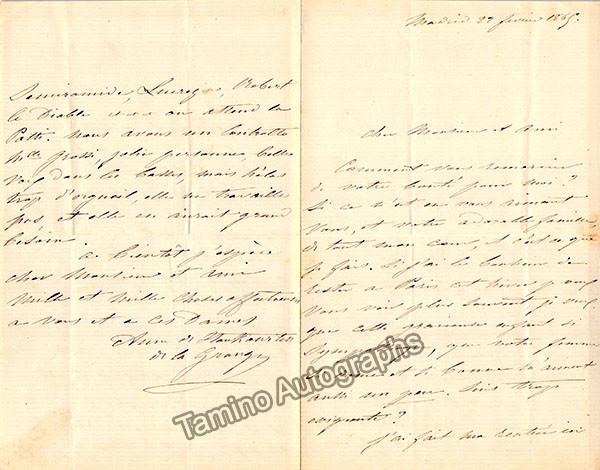 Madrid 27 février 1865.
Cher Monsieur et Ami
Comment vous remercier
de votre bonté pour moi?
Si ce n'est en vous aimant
Vous, et votre adorable famille,
de tout mon cœur, et c'est ce que
je fais. Si j'ai le bonheur de
rester a Paris cet hiver je
vous voir plus souvent, je veux
que cette gracieuse enfant si
sympathique, que votre femme
et si bonne m'aiment
aussi un peu. Suis trop
exigeante?
J'ai fait ma rentrée ici
Semiramide, Lucrezia, Robert
le Diable on attend la
Patti. nous avons un Contralto
Mlle Grossi, jolie personne, belle
voix dans les basses, mais hélas
trop d'orgueil, elle ne travaille
pas, et elle en aurait grand
besoin.
a bientôt j'espère
cher Monsieur et ami
Mille et Mille choses affectueuses
a vous et a ces Dames
Anna de
de la Grange
Tamino Autographs